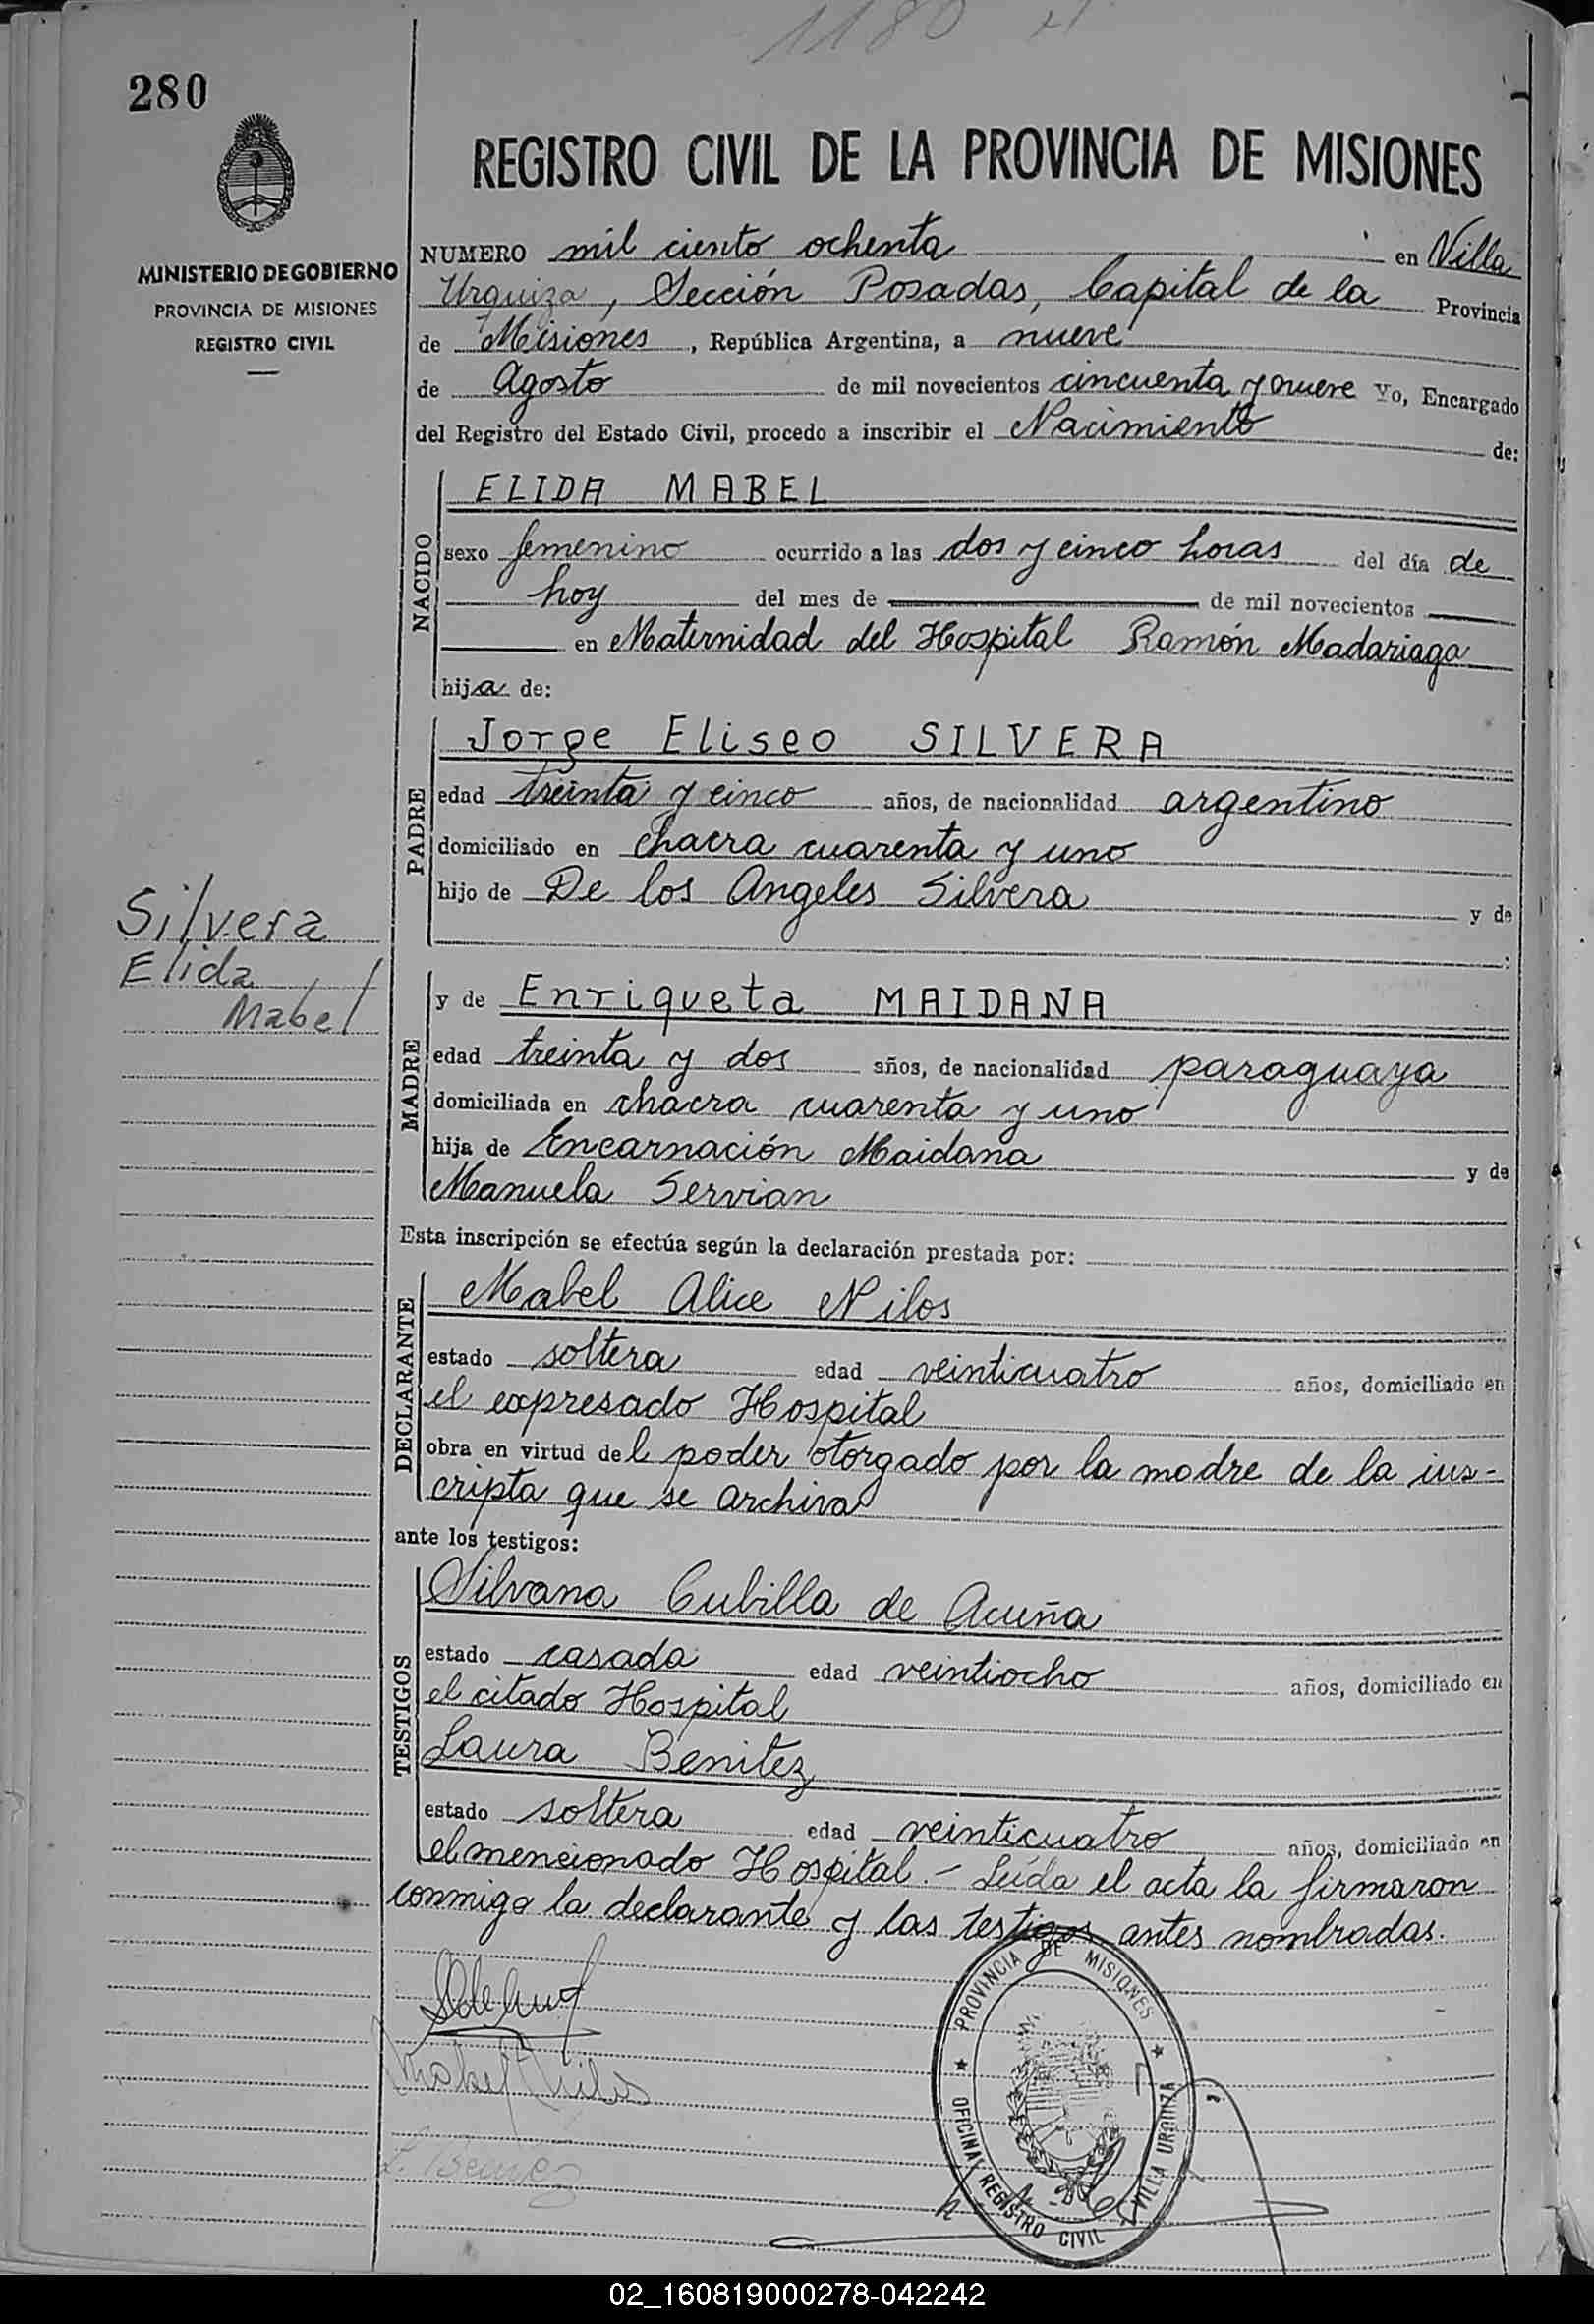 1180
280
REGISTRO CIVIL DE LA PROVINCIA DE MISIONES
MINISTERIO DE GOBIERNO
PROVINCIA DE MISIONES
REGISTRO CIVIL
NUMERO mil ciento ochenta en Villa
Urquiza, Sección Posadas, Capital de la Provincia
de Misiones, República Argentina, a nueve
de Agosto de mil novecientos cincuenta y nueve Yo, Encargado
del Registro del Estado Civil, procedo a inscribir el Nacimiento de:
NACIDO
ELIDA MABEL
sexo femenino ocurrido a las dos y cinco horas del día de
hoy del mes de de mil novecientos
en Maternidad del Hospital Ramón Madariaga
hija de:
PADRE
Jorge Eliseo SILVERA
edad treinta y cinco años, de nacionalidad argentino
domiciliado en chacra cuarenta y uno
hijo de De los Angeles Silvera y de
Silvera
Elida
Mabel
MADRE
y de Enriqueta MAIDANA
edad treinta y dos años, de nacionalidad paraguaya
domiciliada en chacra cuarenta y uno
hija de Encarnación Maidana y de
Manuela Servian
Esta inscripción se efectúa según la declaración prestada por:
DECLARANTE
Mabel Alice Nilos
estado soltera edad veinticuatro años, domiciliado en
el expresado Hospital
obra en virtud del poder otorgado por la madre de la ins-
cripta que se archiva
ante los testigos:
TESTIGOS
Silvana Cubilla de Acuña
estado casada edad veintiocho años, domiciliado en
el citado Hospital
Laura Benitez
estado soltera edad veinticuatro años, domiciliado en
el mencionado Hospital.- Leída el acta la firmaron
conmigo la declarante y las testigos antes nombradas.
PROVINCIA DE MISIONES
OFICINA REGISTRO CIVIL VILLA URQUIZA
Mabel Nilos
L. Benitez
02_160819000278-042242